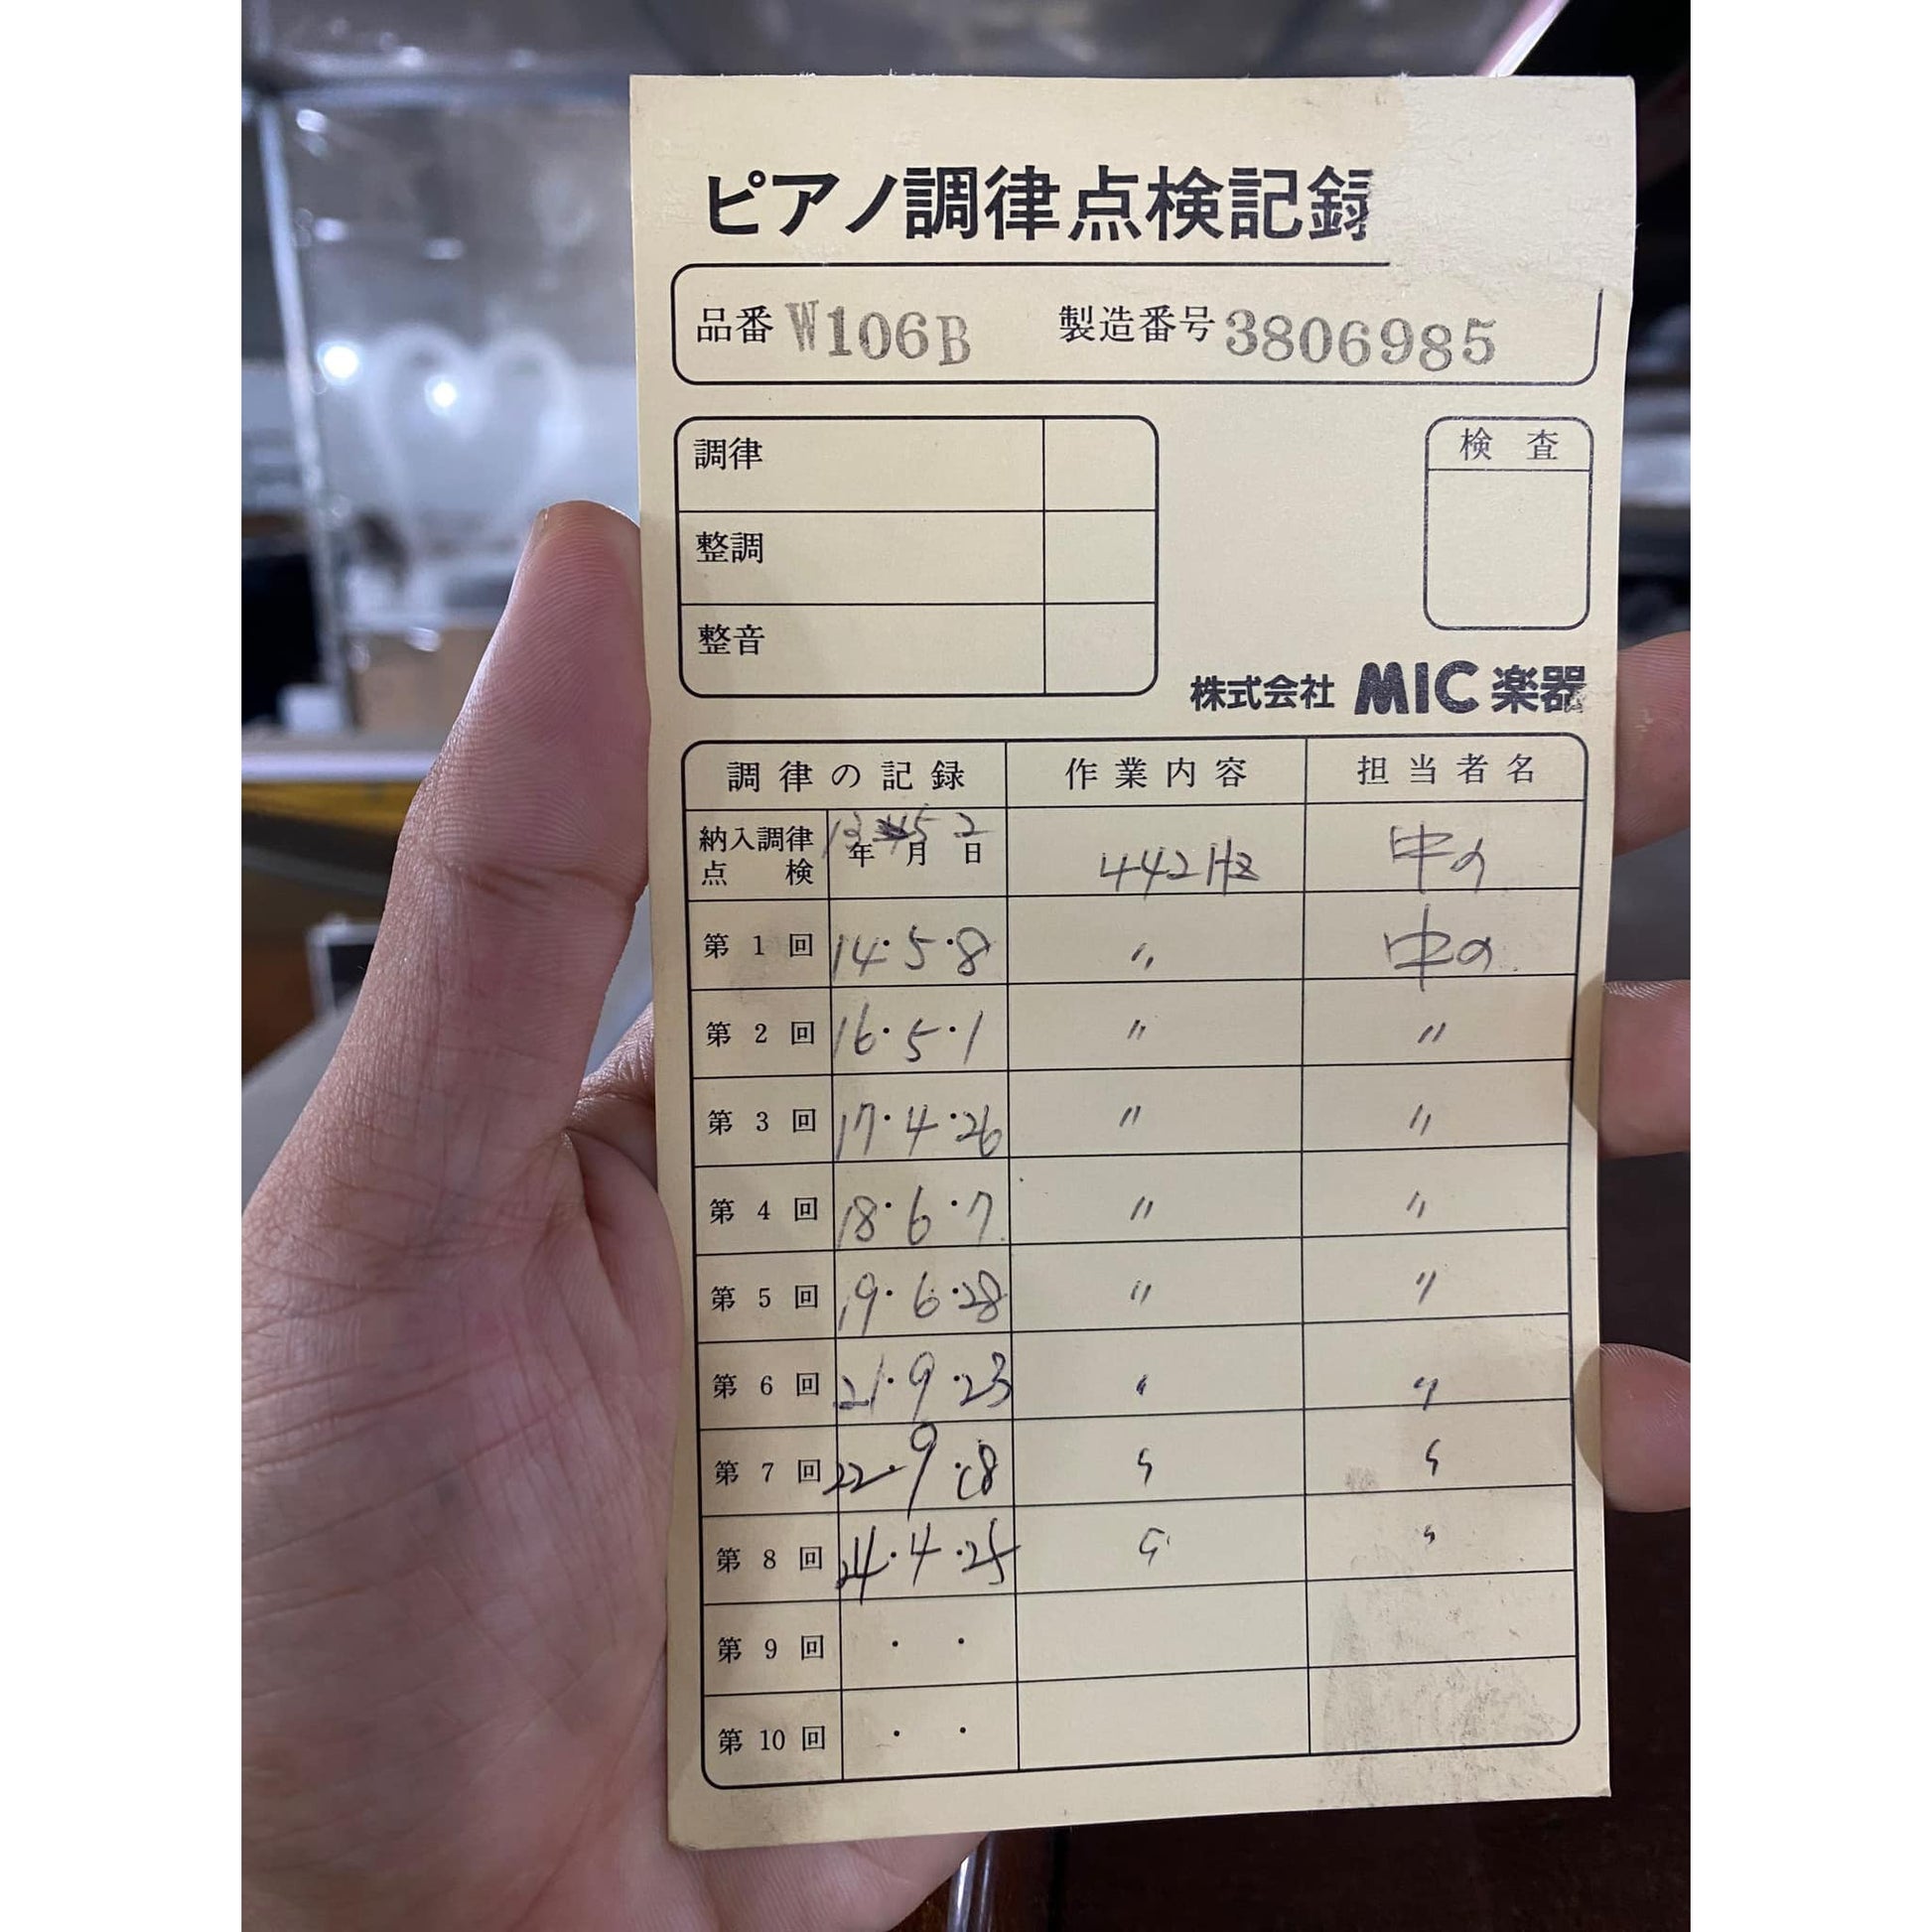 ピアノ調律点検記録
品番 W106B 製造番号 3806985
調律
検 査
整調
整音
株式会社 MIC 楽器
調律の記録 作業内容 担当者名
納入調律点検 13年 5月 2日 442Hz 中の
第1回 14・5・8 〃 中の
第2回 16・5・1 〃 〃
第3回 17・4・26 〃 〃
第4回 18・6・7 〃 〃
第5回 19・6・28 〃 〃
第6回 21・9・23 〃 〃
第7回 22・9・18 〃 〃
第8回 24・4・25 〃 〃
第9回 ・ ・
第10回 ・ ・